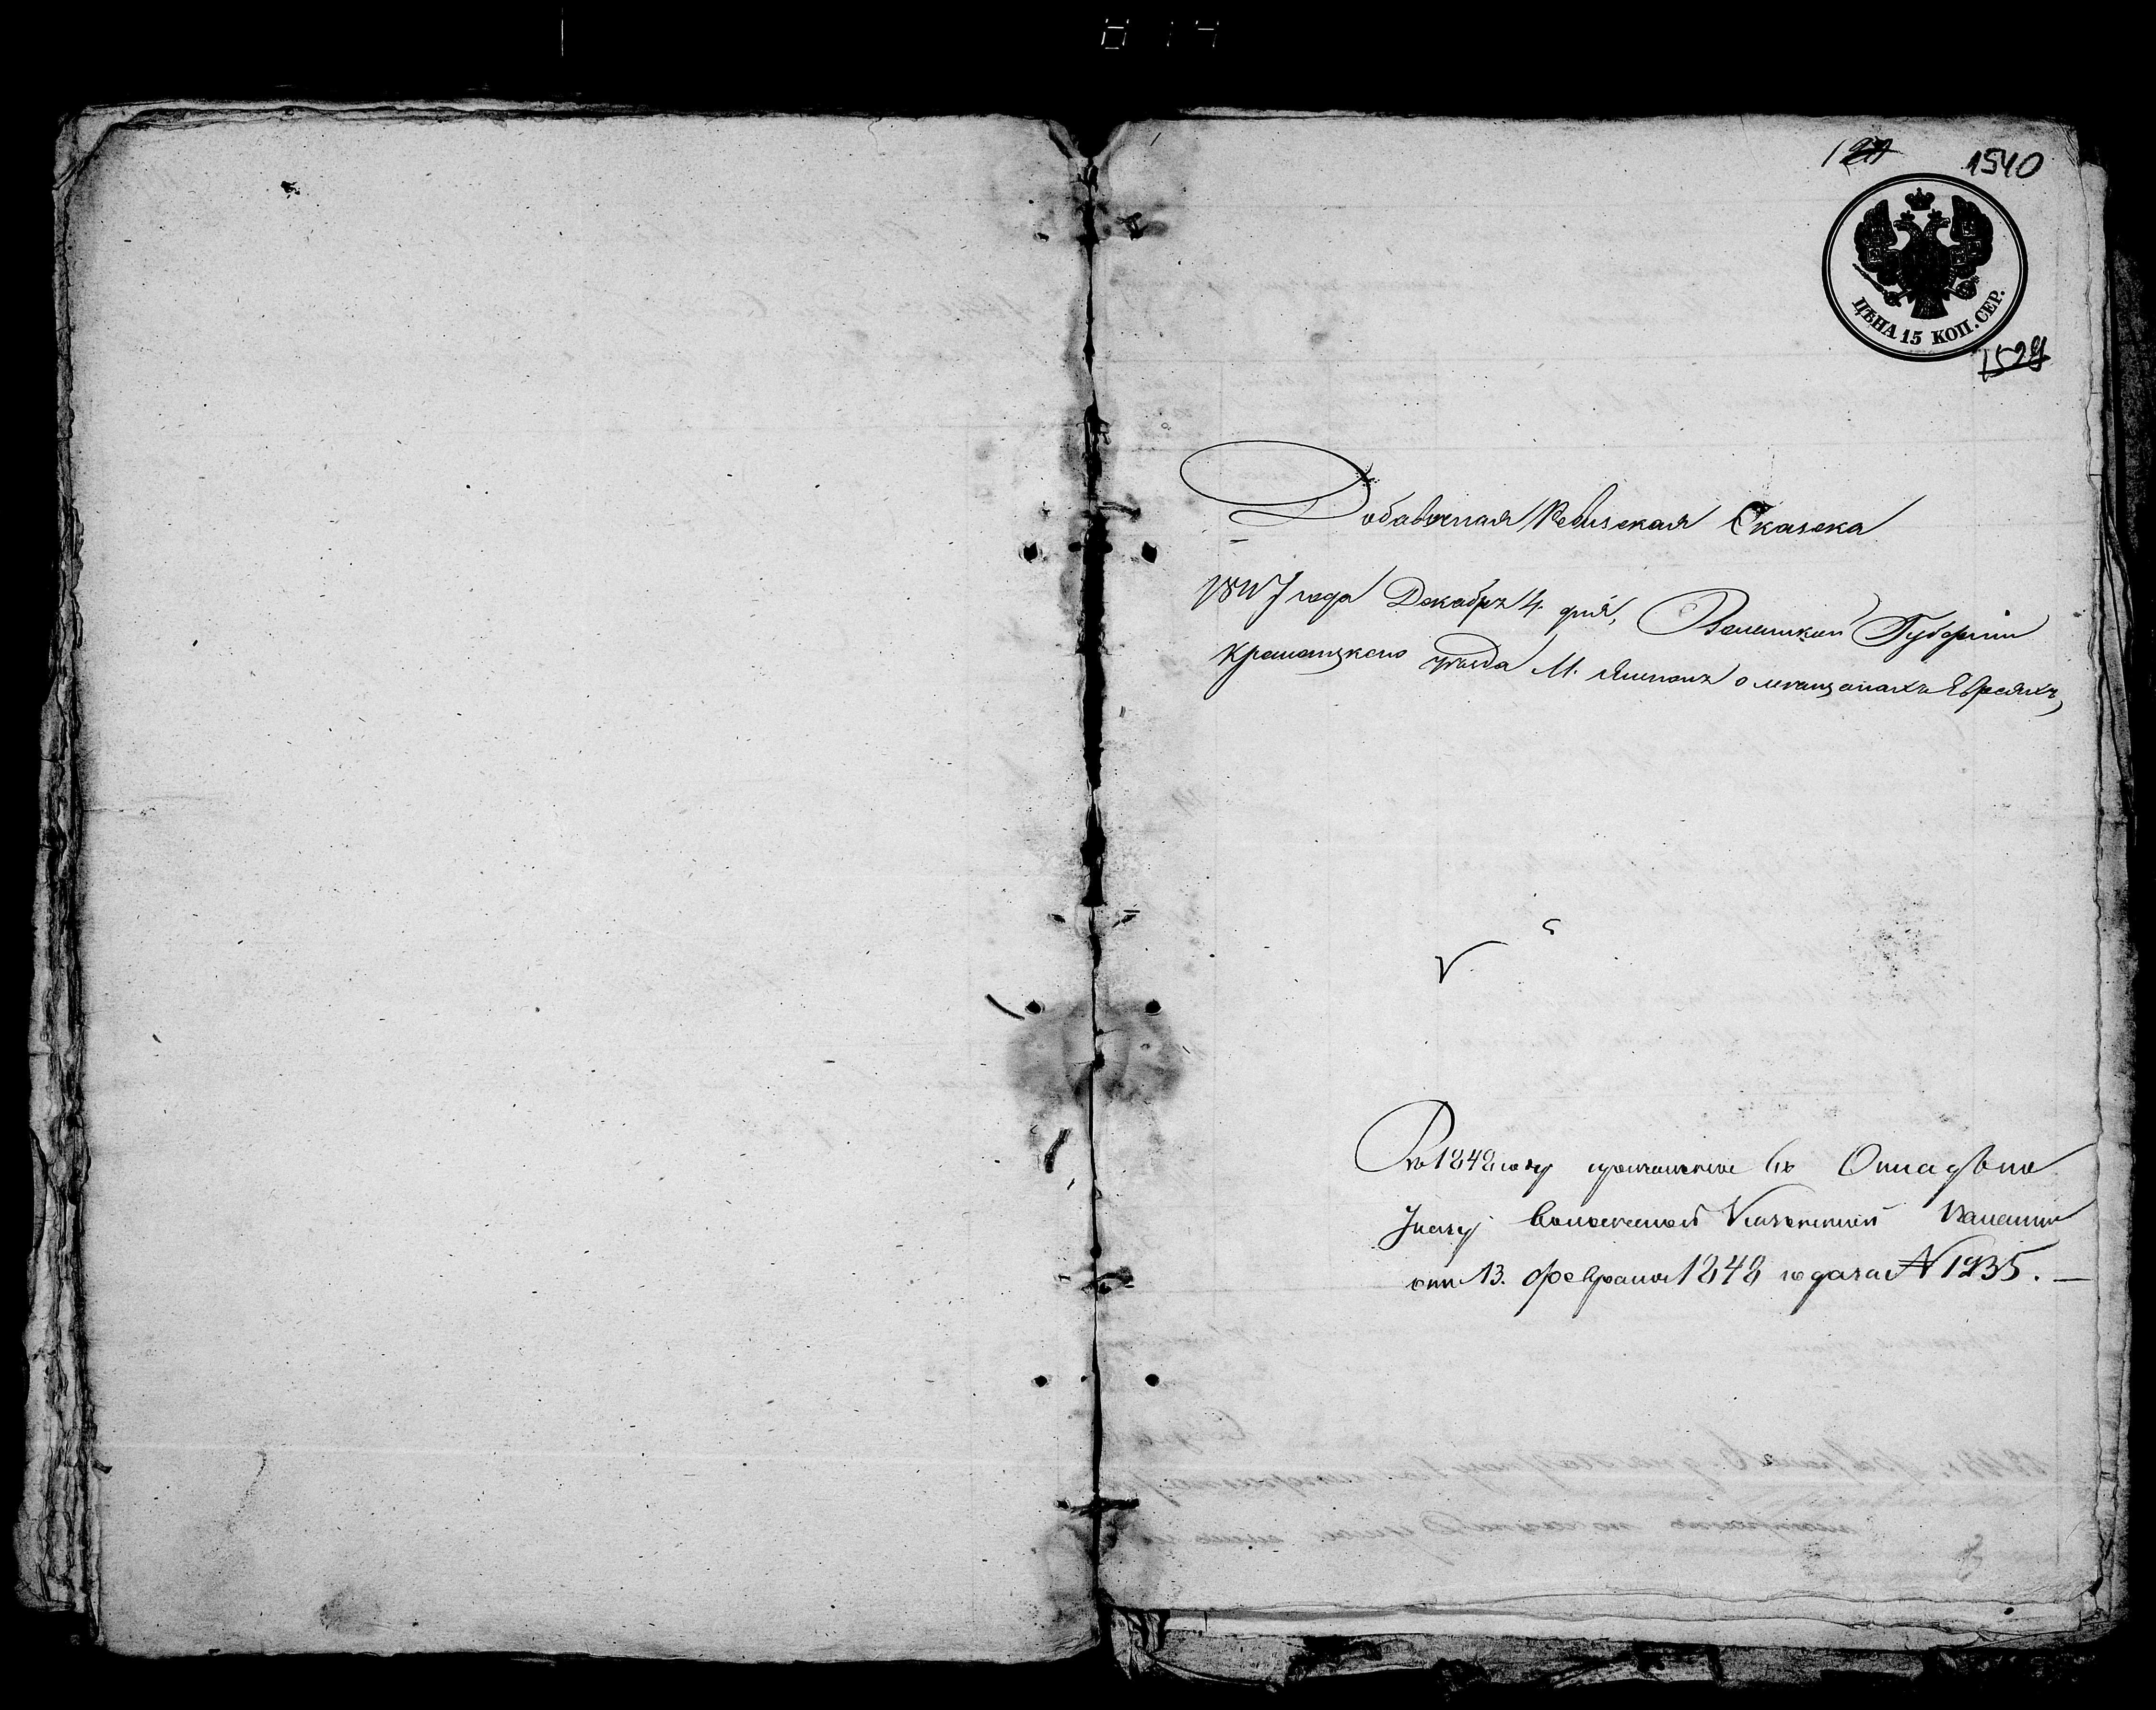 1540
ЦѢНА 15 КОП. СЕР.
1529
Добавочная Ревизская Сказка
1847 года Декабря 4. дня, Волынской Губерніи
Кременецкого уѣзда М. Ямполя о мещанахъ Евреяхъ
По 1848 году въ
Указу Волынской Казенной Палаты
отъ 13. февраля 1848 года за N 1935. —